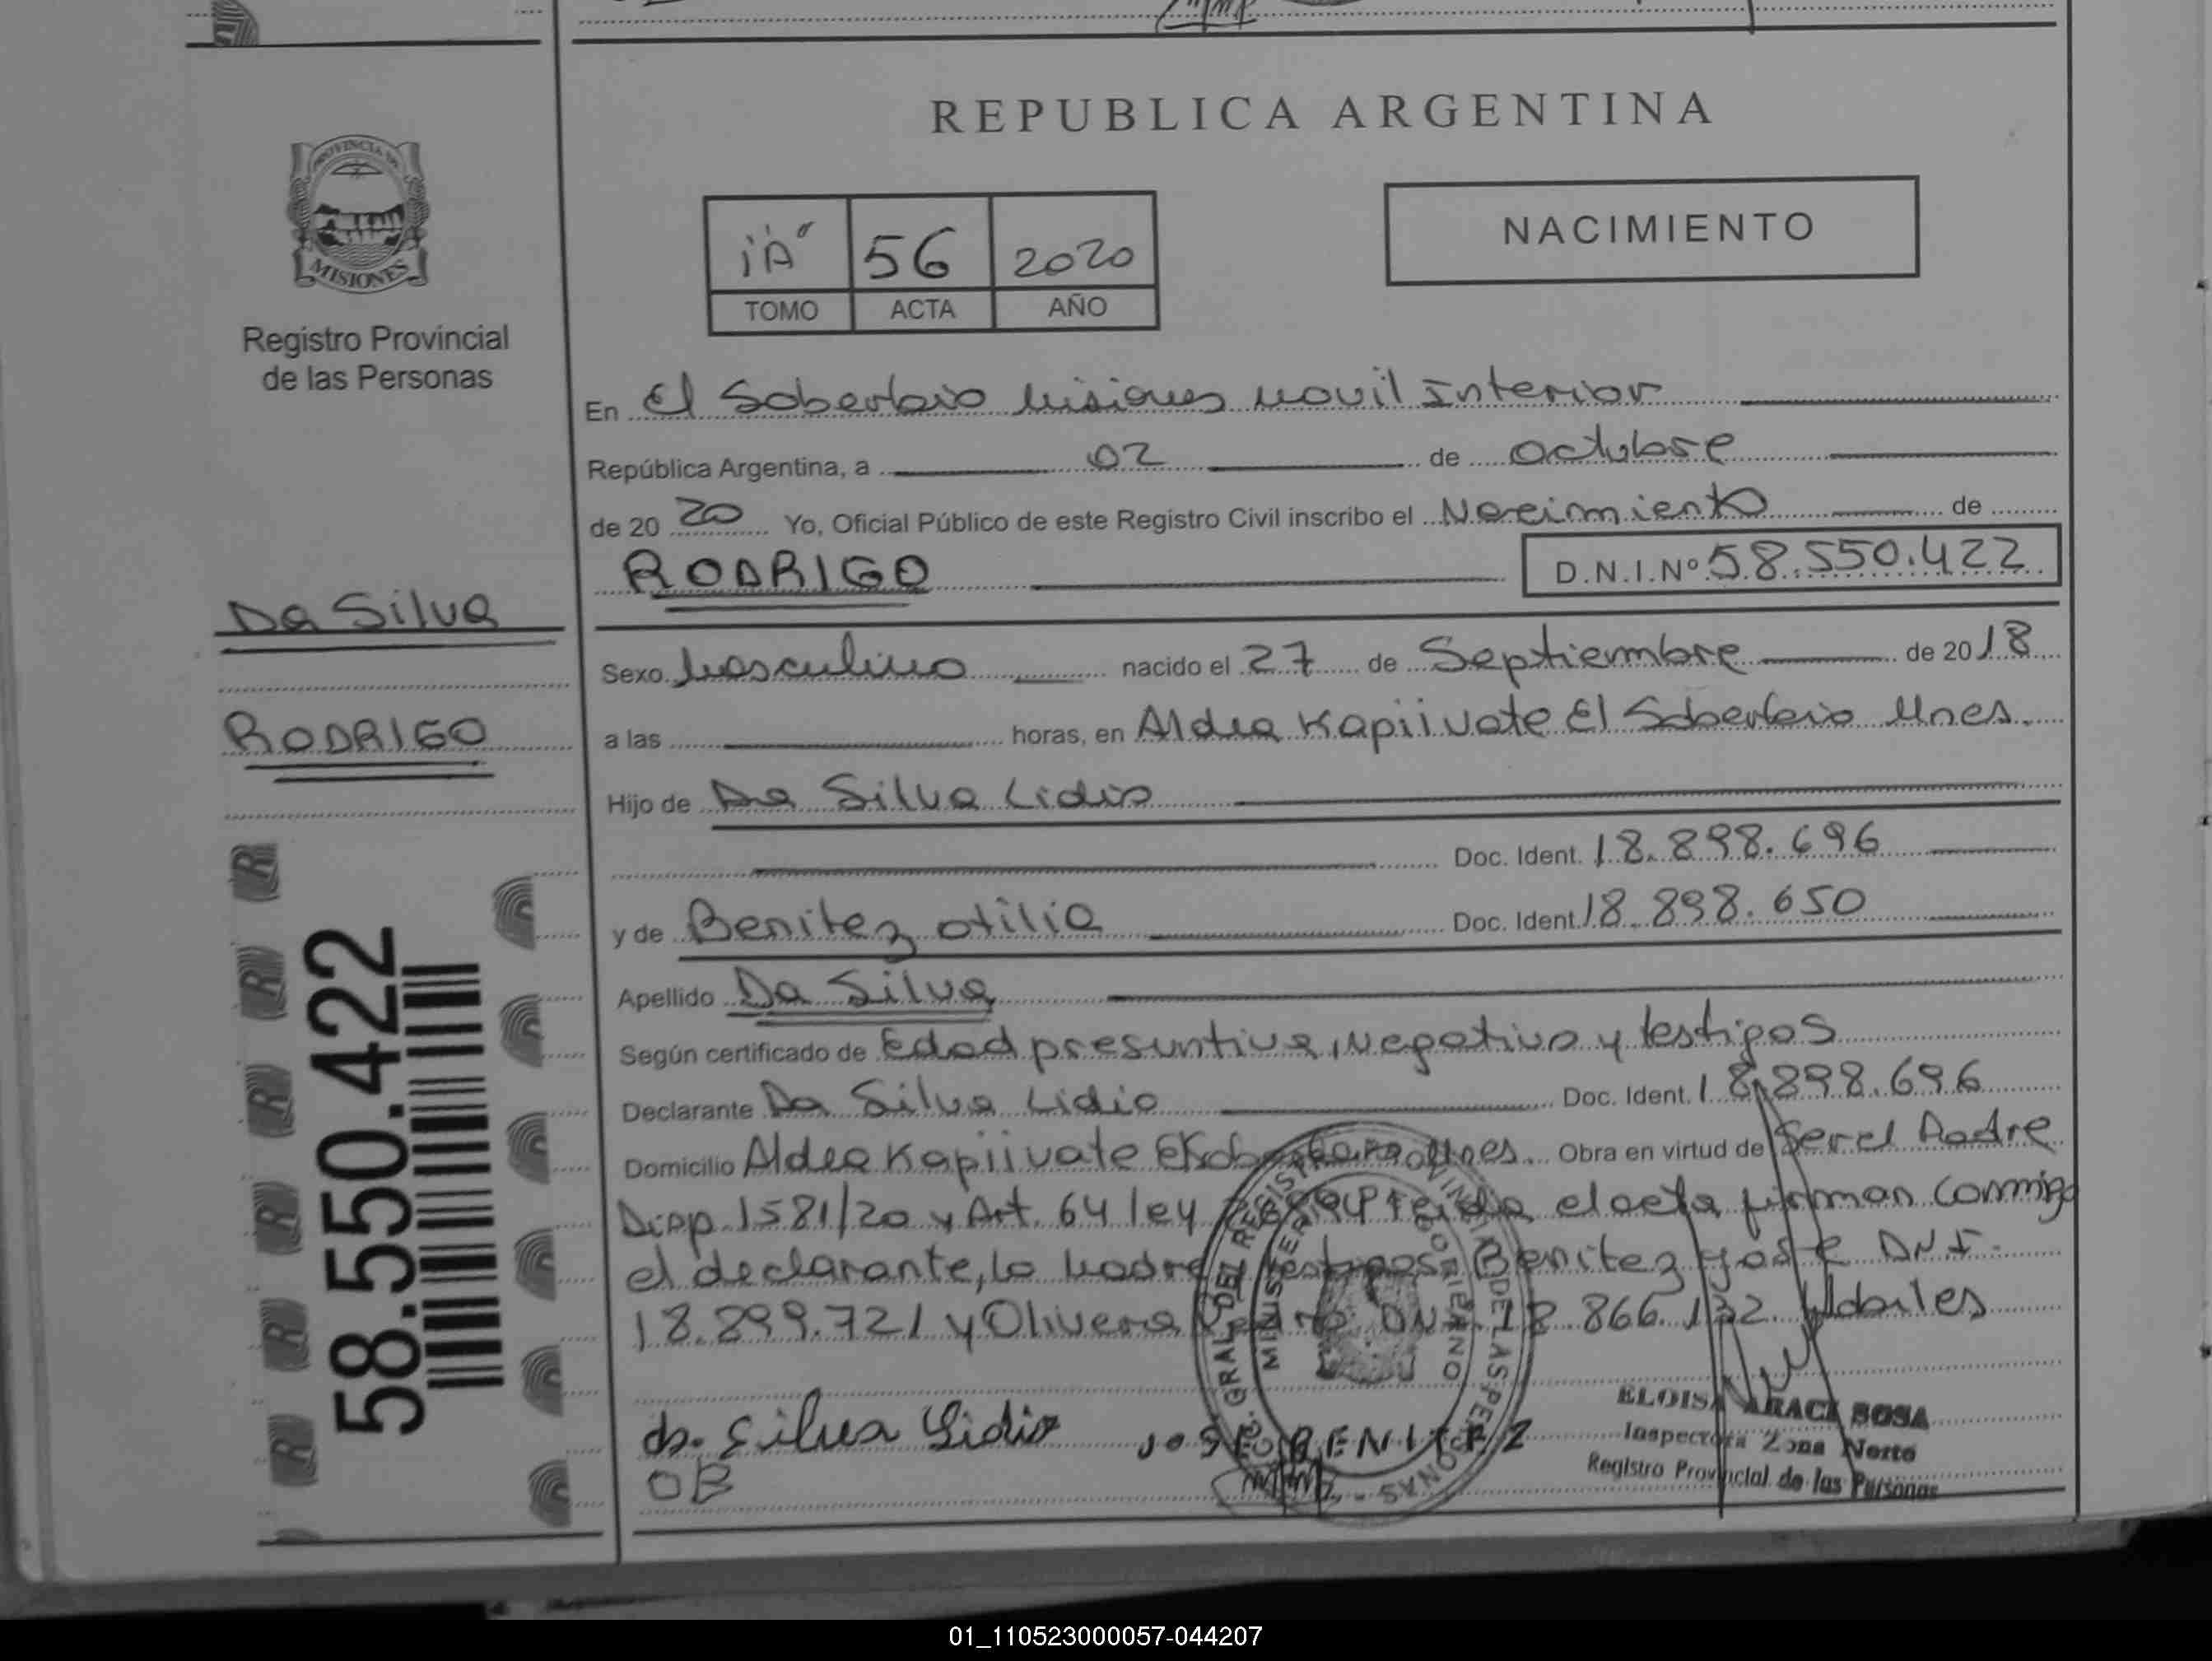 REPUBLICA ARGENTINA
PROVINCIA DE
MISIONES
Registro Provincial
de las Personas
"A" 56 2020
TOMO ACTA AÑO
NACIMIENTO
En El Soberbio Misiones Movil Interior
República Argentina, a 02 de octubre
de 20 20 Yo, Oficial Público de este Registro Civil inscribo el Nacimiento de
RODRIGO D.N.I.Nº 58.550.422
Da Silva
RODRIGO
58.550.422
Sexo Masculino nacido el 27 de Septiembre de 20 18
a las horas, en Aldea Kapiivate El Soberbio Mnes.
Hijo de Da Silva Lidio
Doc. Ident. 18.898.696
y de Benitez Otilia Doc. Ident. 18.898.650
Apellido Da Silva
Según certificado de Edad presuntiva, Negativo y testigos
Declarante Da Silva Lidio Doc. Ident. 18.898.696
Domicilio Aldea Kapiivate El Soberbio Mnes. Obra en virtud de Ser el Padre
Disp. 1581/20 y Art. 64 ley leida el acta firman conmigo
el declarante, la Madre testigos: Benitez Jose DNI.
18.899.721 y Olivera DNI. 18.866.132. Habiles
da. silva Lidio JOSE BENITEZ
OB
ELOISA ARACI SOSA
Inspectora Zona Norte
Registro Provincial de las Personas
GRAL DEL REGISTRO PROVINCIAL DE LAS PERSONAS
MINISTERIO GOBIERNO
01_110523000057-044207